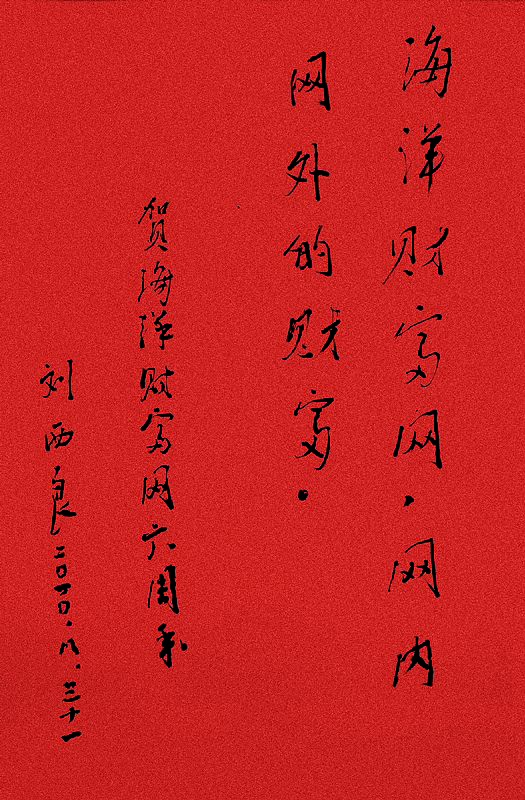 海洋财富网，网内
网外的财富.
贺海洋财富网六周年
刘西良二〇一〇.八.三十一